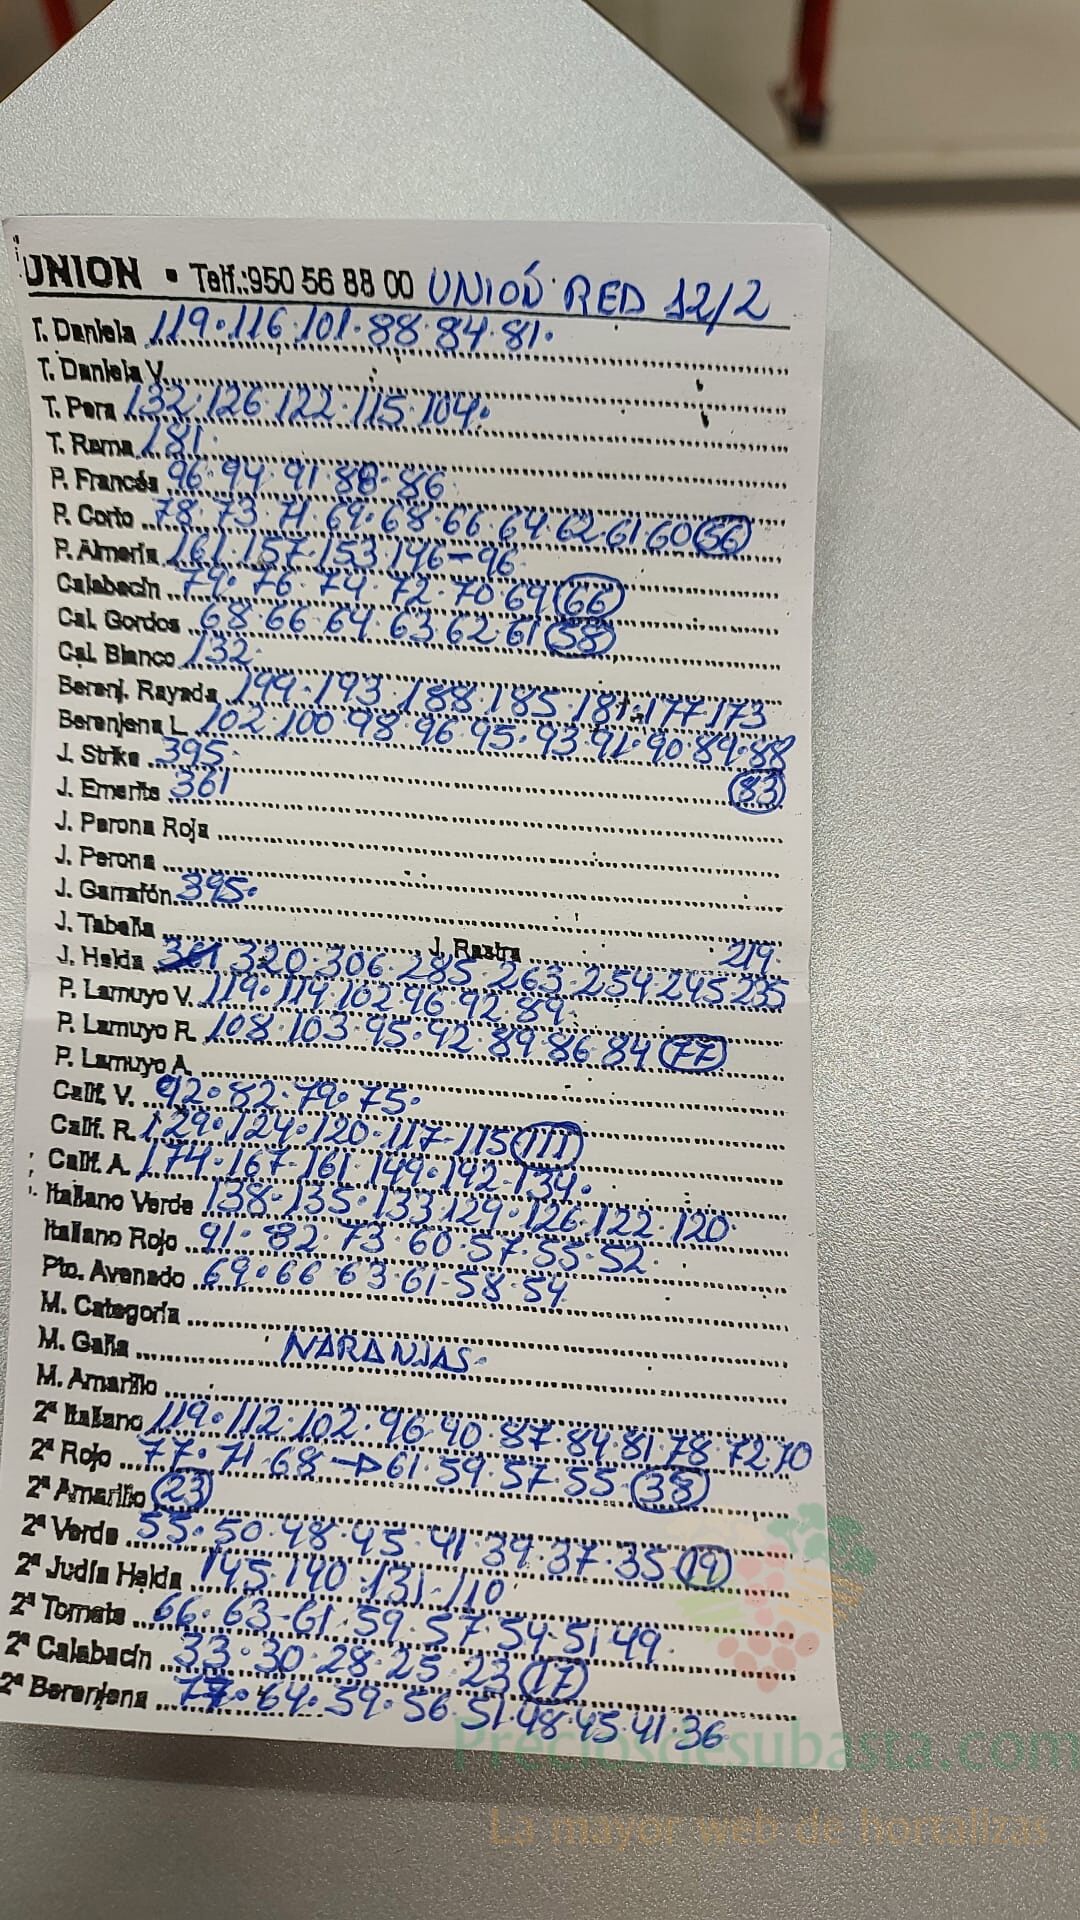 UNION • Telf.:950 56 88 00 UNIÓN RED 12/2
T. Daniela 119·116·101·88·84·81·
T. Daniela V.
T. Pera 132·126·122·115·104·
T. Rama 181·
P. Francés 96·94·91·88·86
P. Corto 78·73·71·69·68·66·64·62·61·60 56
P. Almería 161·157·153·146-96·
Calabacín 79·76·74·72·70·69 66
Cal. Gordos 68·66·64·63·62·61 58
Cal. Blanco 132·
Berenj. Rayada 199·193·188·185·181·177·173
Berenjena L. 102·100·98·96·95·93·91·90·89·88
J. Strike 395·
83
J. Emerite 361
J. Perona Roja
J. Perona
J. Garrafón 395·
J. Tabella
J. Rastra 219·
J. Helda 320·306·285·263·254·245·235
P. Lamuyo V. 119·114·102·96·92·89·
P. Lamuyo R. 108·103·95·92·89·86·84 77
P. Lamuyo A.
Calif. V. 92·82·79·75·
Calif. R. 129·124·120·117-115 111
Calif. A. 174·167·161·149·142-134·
Italiano Verde 138·135·133·129·126·122·120·
Italiano Rojo 91·82·73·60·57·55·52·
Pto. Asado 69·66·63·61·58·54
M. Categoría
M. Galia NARANJAS·
M. Amarillo
2ª Italiano 119·112·102·96·90·87·84·81·78·72·70
2ª Rojo 77·71·68→61·59·57·55 38
2ª Amarillo 23
2ª Verde 55·50·48·45·41·39·37·35 19
2ª Judía Helda 145·140·131-110
2ª Tomate 66·63-61·59·57·54·51·49·
2ª Calabacín 33·30·28·25·23 17
2ª Berenjena 64·59·56·51·48·45·41·36
Preciosdesubasta.com
La mayor web de hortalizas